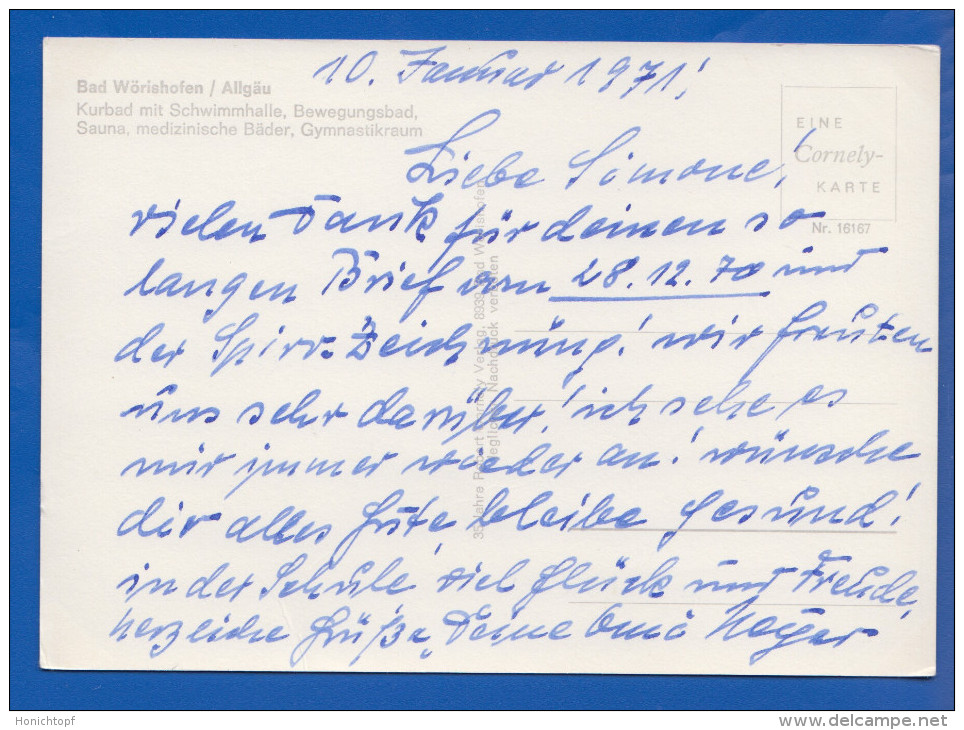 10. Januar 1971!
Bad Wörishofen / Allgäu
Kurbad mit Schwimmhalle, Bewegungsbad,
Sauna, medizinische Bäder, Gymnastikraum
EINE
Cornely-
KARTE
Nr. 16167
Liebe Simone!
vielen Dank für deinen so
langen Brief vom 28.12.70 und
der Zeichnung! wir freuten
uns sehr darüber! ich sehe es
mir immer wieder an! wünsche
dir alles Gute, bleibe gesund!
in der Schule viel Glück und Freude,
herzliche Grüße, Deine Omi
35 Jahre Verlag, 8939 Bad Wörishofen
Nachdruck verboten
Honichtopf
www.delcampe.net